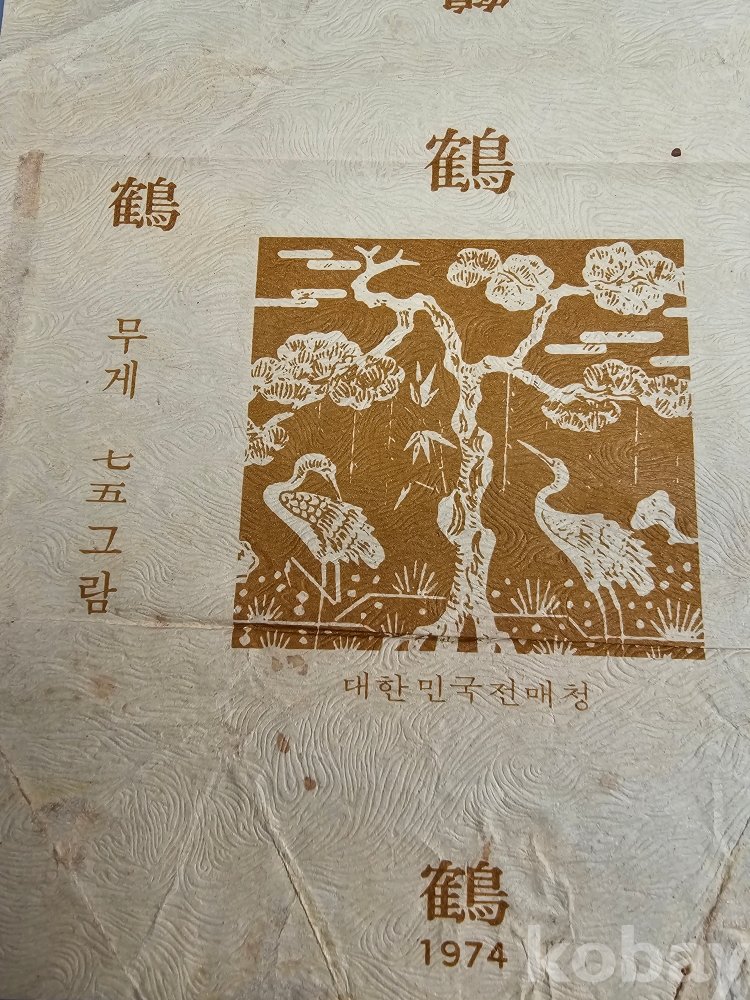 鶴
鶴
鶴
무게 七五그람
대한민국전매청
鶴
1974
kobay